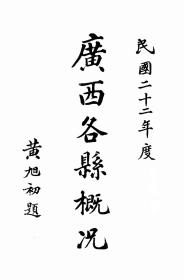 民國二十二年度
廣西各縣概况
黃旭初題